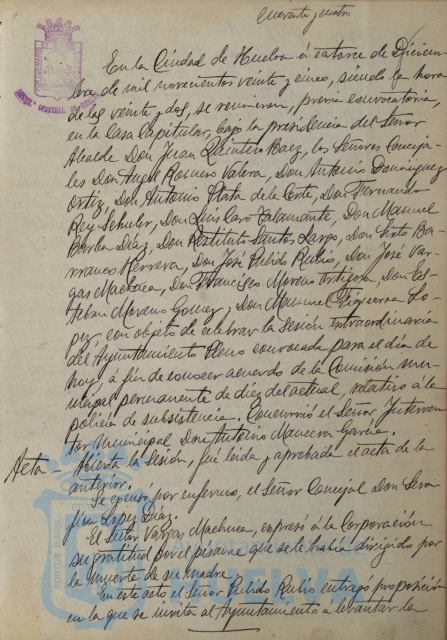 cuarenta y cuatro
En la Ciudad de Huelva á catorce de Diciem-
bre de mil novecientos veinte y cinco, siendo la hora
de las veinte y dos, se reunieron, previa convocatoria,
en la Casa Capitular, bajo la presidencia del Señor
Alcalde Don Juan Quintero Baez, los Señores Conceja-
les Don Angel Romero Valera, Don Antonio Dominguez
Ortiz, Don Antonio Plata de la Corte, Don Fernando
Rey Schuler, Don Luis Caro Calamante, Don Manuel
Barba Diaz, Don Restituto Santos Largo, Don Sixto Ba-
rranco Herrera, Don José Pulido Rubio, Don José Var-
gas Machuca, Don Francisco Moreno Ortigosa, Don Es-
teban Moreno Gomez, Don Manuel Figueroa Lo-
pez, con objeto de celebrar la Sesión extraordinaria
del Ayuntamiento Pleno convocada para el día de
hoy, á fin de conocer acuerdo de la Comisión mu-
nicipal permanente de diez del actual, relativo á la
policía de subsistencia. Concurrió el Señor Interven-
tor Municipal Don Antonio Mancera Garcia.
Acta - Abierta la Sesión, fué leida y aprobada el acta de la
anterior.
Se excusó, por enfermo, el Señor Concejal Don Sera-
fin Lopez Diaz.
El Señor Vargas Machuca, expresó á la Corporación
su gratitud por el pésame que se le habia dirigido por
la muerte de su madre.
En este acto el Señor Pulido Rubio entregó proposición
en la que se invita al Ayuntamiento a levantar la